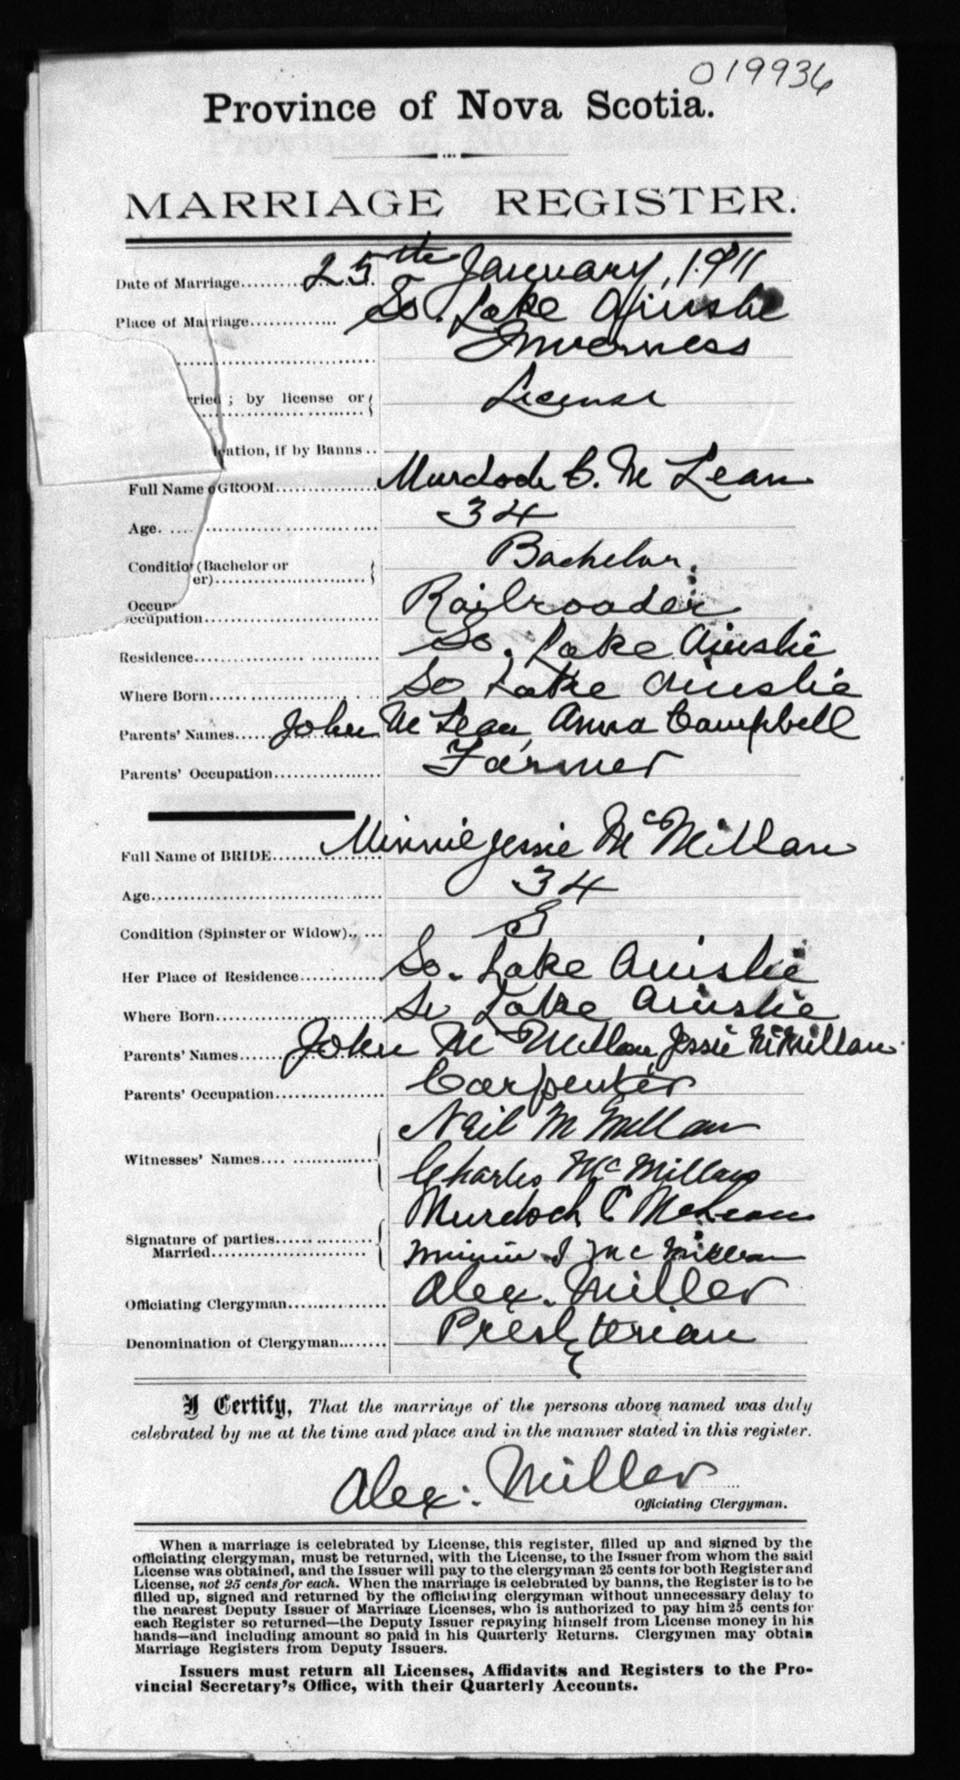 019936
Province of Nova Scotia.
MARRIAGE REGISTER.
Date of Marriage 25th January, 1911
Place of Marriage So. Lake Ainslie
Inverness
ried; by license or License
ation, if by Banns
Full Name GROOM Murdoch C. McLean
Age. 34
Condition (Bachelor or Bachelor.
er)
Occup
ccupation Railroader
Residence So. Lake Ainslie
Where Born So Lake Ainslie
Parents' Names John McLean, Anna Campbell
Parents' Occupation Farmer
Full Name of BRIDE Minnie Jessie McMillan
Age 34
Condition (Spinster or Widow) S
Her Place of Residence So. Lake Ainslie
Where Born So Lake Ainslie
Parents' Names John McMillan Jessie McMillan
Parents' Occupation Carpenter
Neil McMillan
Witnesses' Names
Charles McMillan
Murdoch C McLean
Signature of parties
Married Minnie J McMillan
Officiating Clergyman Alex. Miller
Denomination of Clergyman Presbyterian
I Certify, That the marriage of the persons above named was duly
celebrated by me at the time and place and in the manner stated in this register.
Alex. Miller
Officiating Clergyman.
When a marriage is celebrated by License, this register, filled up and signed by the
officiating clergyman, must be returned, with the License, to the Issuer from whom the said
License was obtained, and the Issuer will pay to the clergyman 25 cents for both Register and
License, not 25 cents for each. When the marriage is celebrated by banns, the Register is to be
filled up, signed and returned by the officiating clergyman without unnecessary delay to
the nearest Deputy Issuer of Marriage Licenses, who is authorized to pay him 25 cents for
each Register so returned—the Deputy Issuer repaying himself from License money in his
hands—and including amount so paid in his Quarterly Returns. Clergymen may obtain
Marriage Registers from Deputy Issuers.
Issuers must return all Licenses, Affidavits and Registers to the Pro-
vincial Secretary's Office, with their Quarterly Accounts.